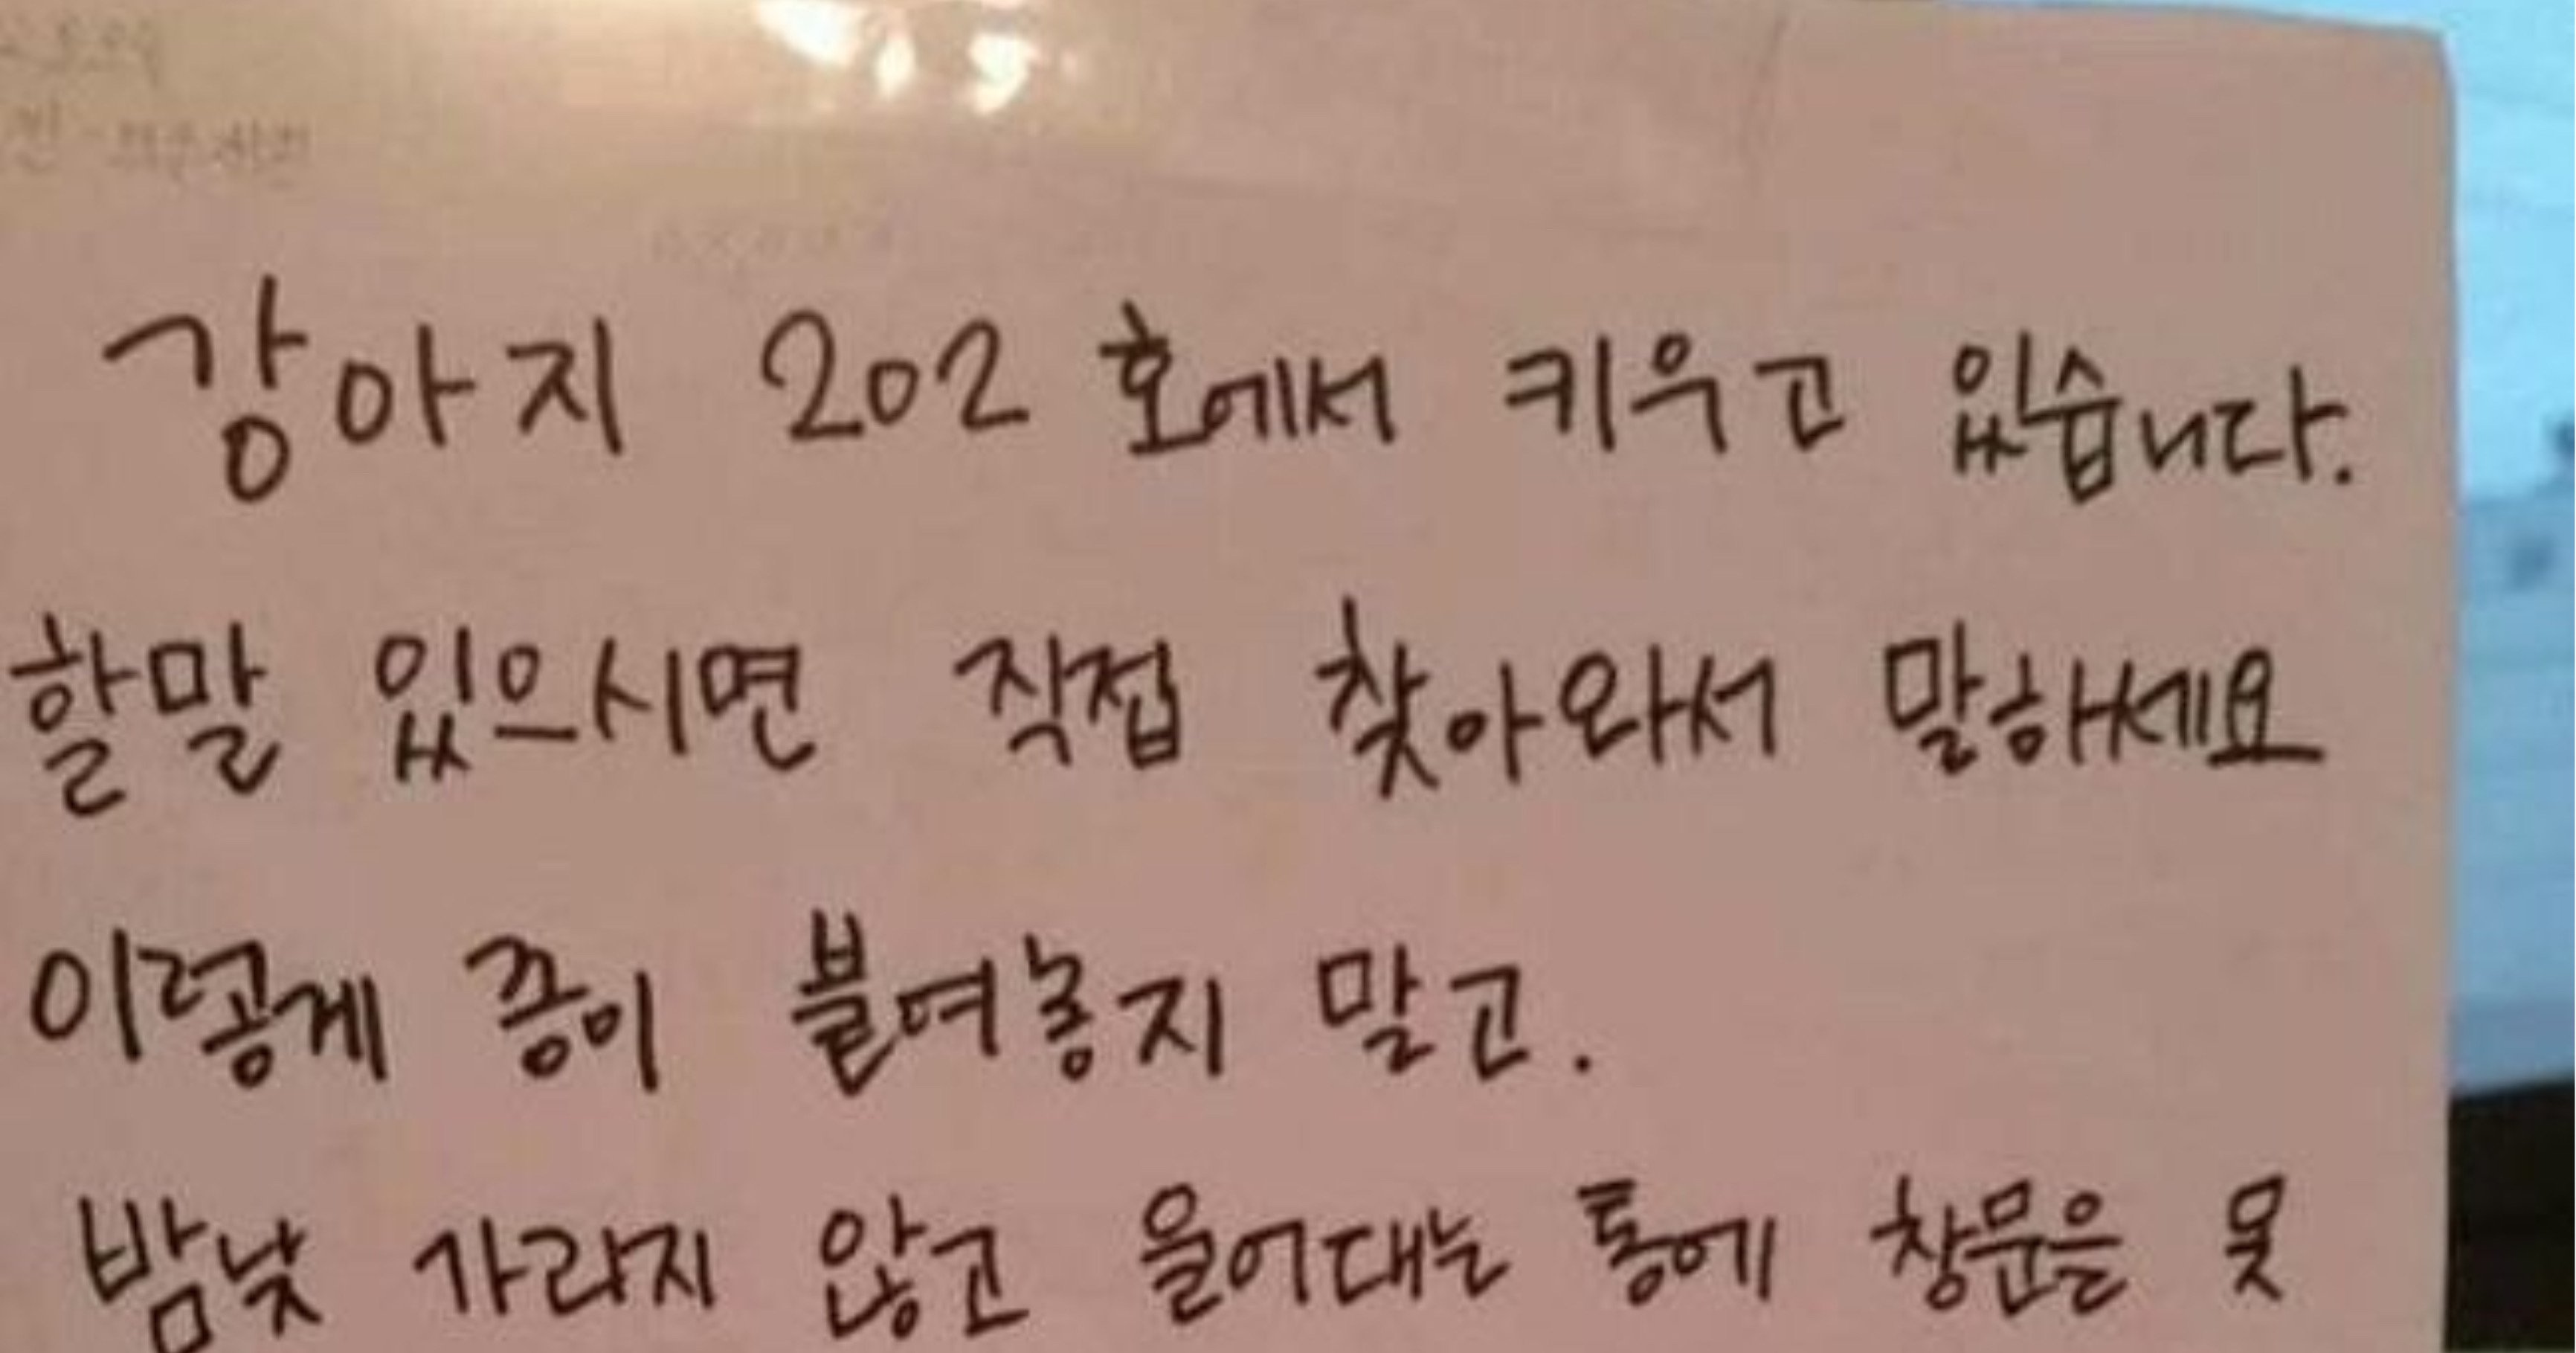 강아지 202호에서 키우고 있습니다.
할말 있으시면 직접 찾아와서 말하세요
이렇게 종이 붙여놓지 말고.
밤낮 가라지 않고 울어대는 통에 창문을 못